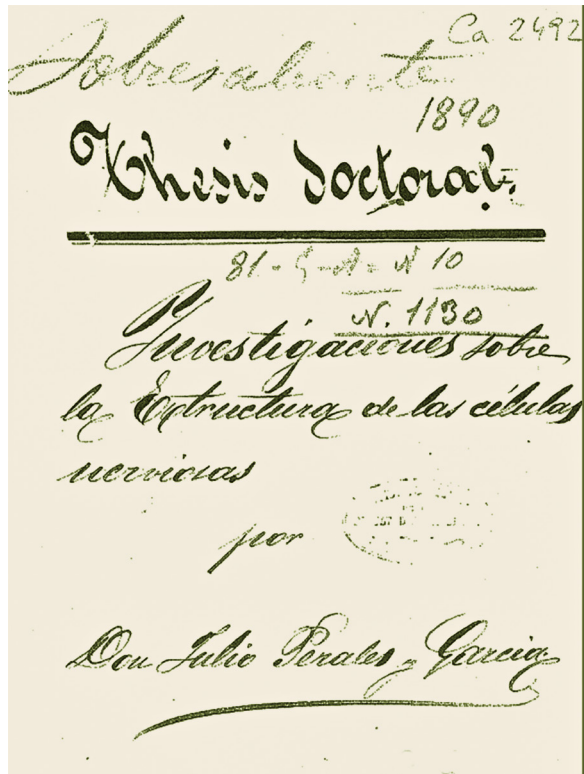 Ca 2492
Sobresaliente
1890
Thesis Doctoral.
N 10
N. 1130
Investigaciones sobre
la Estructura de las células
nerviosas
por
Don Julio Perales y Garcia